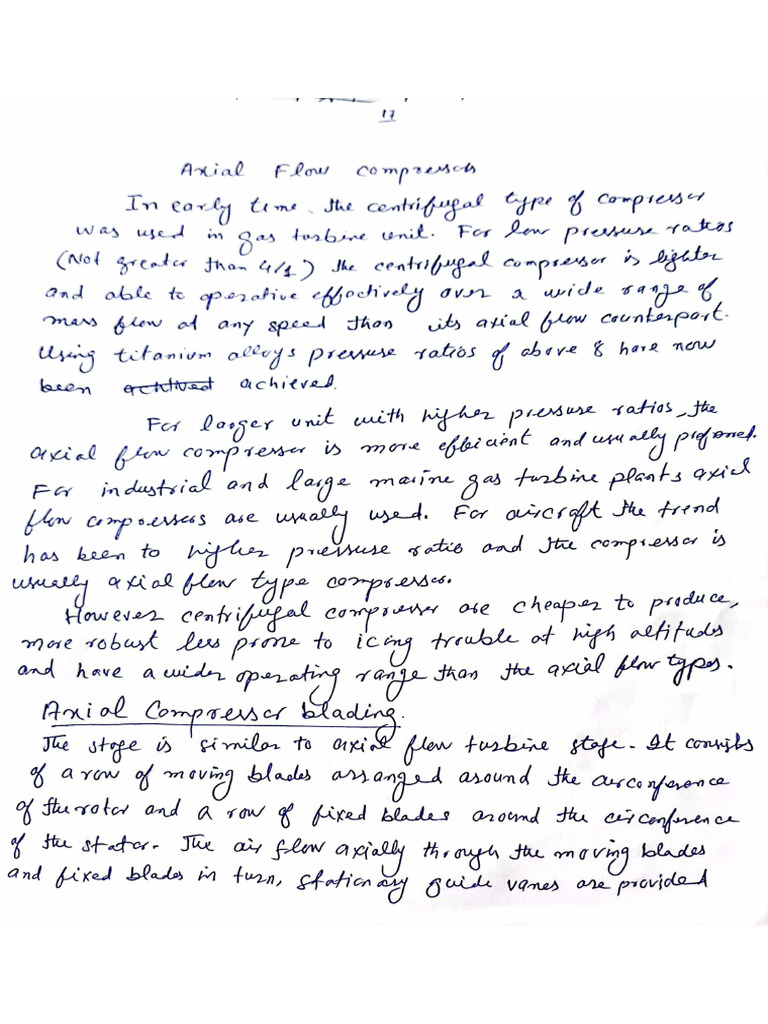 17
Axial Flow Compressors
In early time, the centrifugal type of compressor
was used in gas turbine unit. For low pressure ratios
(Not greater than 4/1) the centrifugal compressor is lighter
and able to operative effectively over a wide range of
mass flow at any speed than its axial flow counterpart.
Using titanium alloys pressure ratios of above 8 have now
been achieved.
For larger unit with higher pressure ratios, the
axial flow compressor is more efficient and usually preferred.
For industrial and large marine gas turbine plants axial
flow compressors are usually used. For aircraft the trend
has been to higher pressure ratio and the compressor is
usually axial flow type compressor.
However centrifugal compressor are cheaper to produce,
more robust less prone to icing trouble at high altitudes
and have a wider operating range than the axial flow types.
Axial Compressor blading.
The stage is similar to axial flow turbine stage. It consists
of a row of moving blades arranged around the circonference
of the rotor and a row of fixed blades around the circonference
of the stator. The air flow axially through the moving blades
and fixed blades in turn, stationary guide vanes are provided